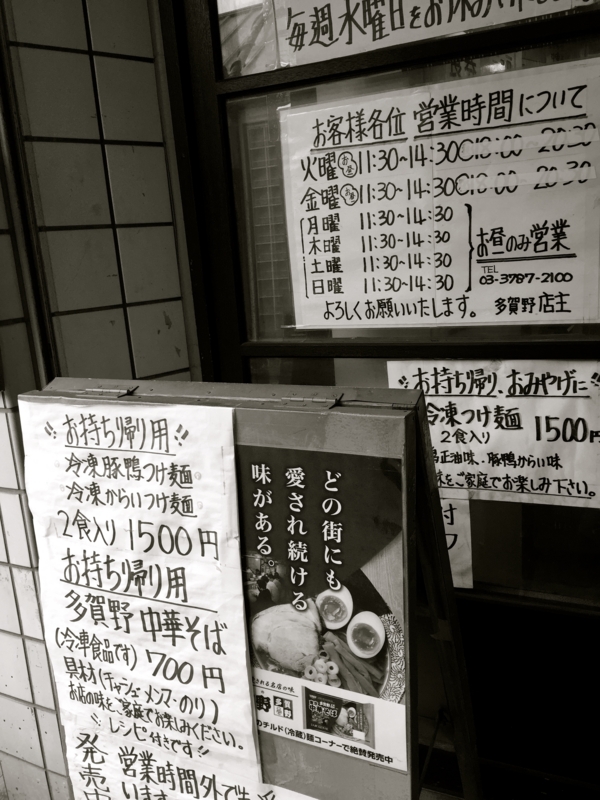 毎週水曜日をお休み
お客様各位 営業時間について
火曜(お昼)11:30~14:30
金曜(お昼)11:30~14:30
月曜 11:30~14:30
木曜 11:30~14:30
土曜 11:30~14:30
日曜 11:30~14:30
お昼のみ営業
TEL
03-3787-2100
よろしくお願いいたします。 多賀野店主
お持ち帰り、おみやげに
冷凍つけ麺
2食入り 1500円
正油味・豚鴨からい味
味をご家庭でお楽しみ下さい。
お持ち帰り用
冷凍豚鴨つけ麺
冷凍からいつけ麺
2食入り 1500円
お持ち帰り用
多賀野 中華そば
(冷凍食品です) 700円
具材方(チャシュー・メンマ・のり)
お店の味をご家庭でお楽しみください。
レシピ付きです
発売中
営業時間外で
います
どの街にも
愛され続ける
味がある。
される名店の味
多賀野
のチルド(冷蔵)麺コーナーで絶賛発売中